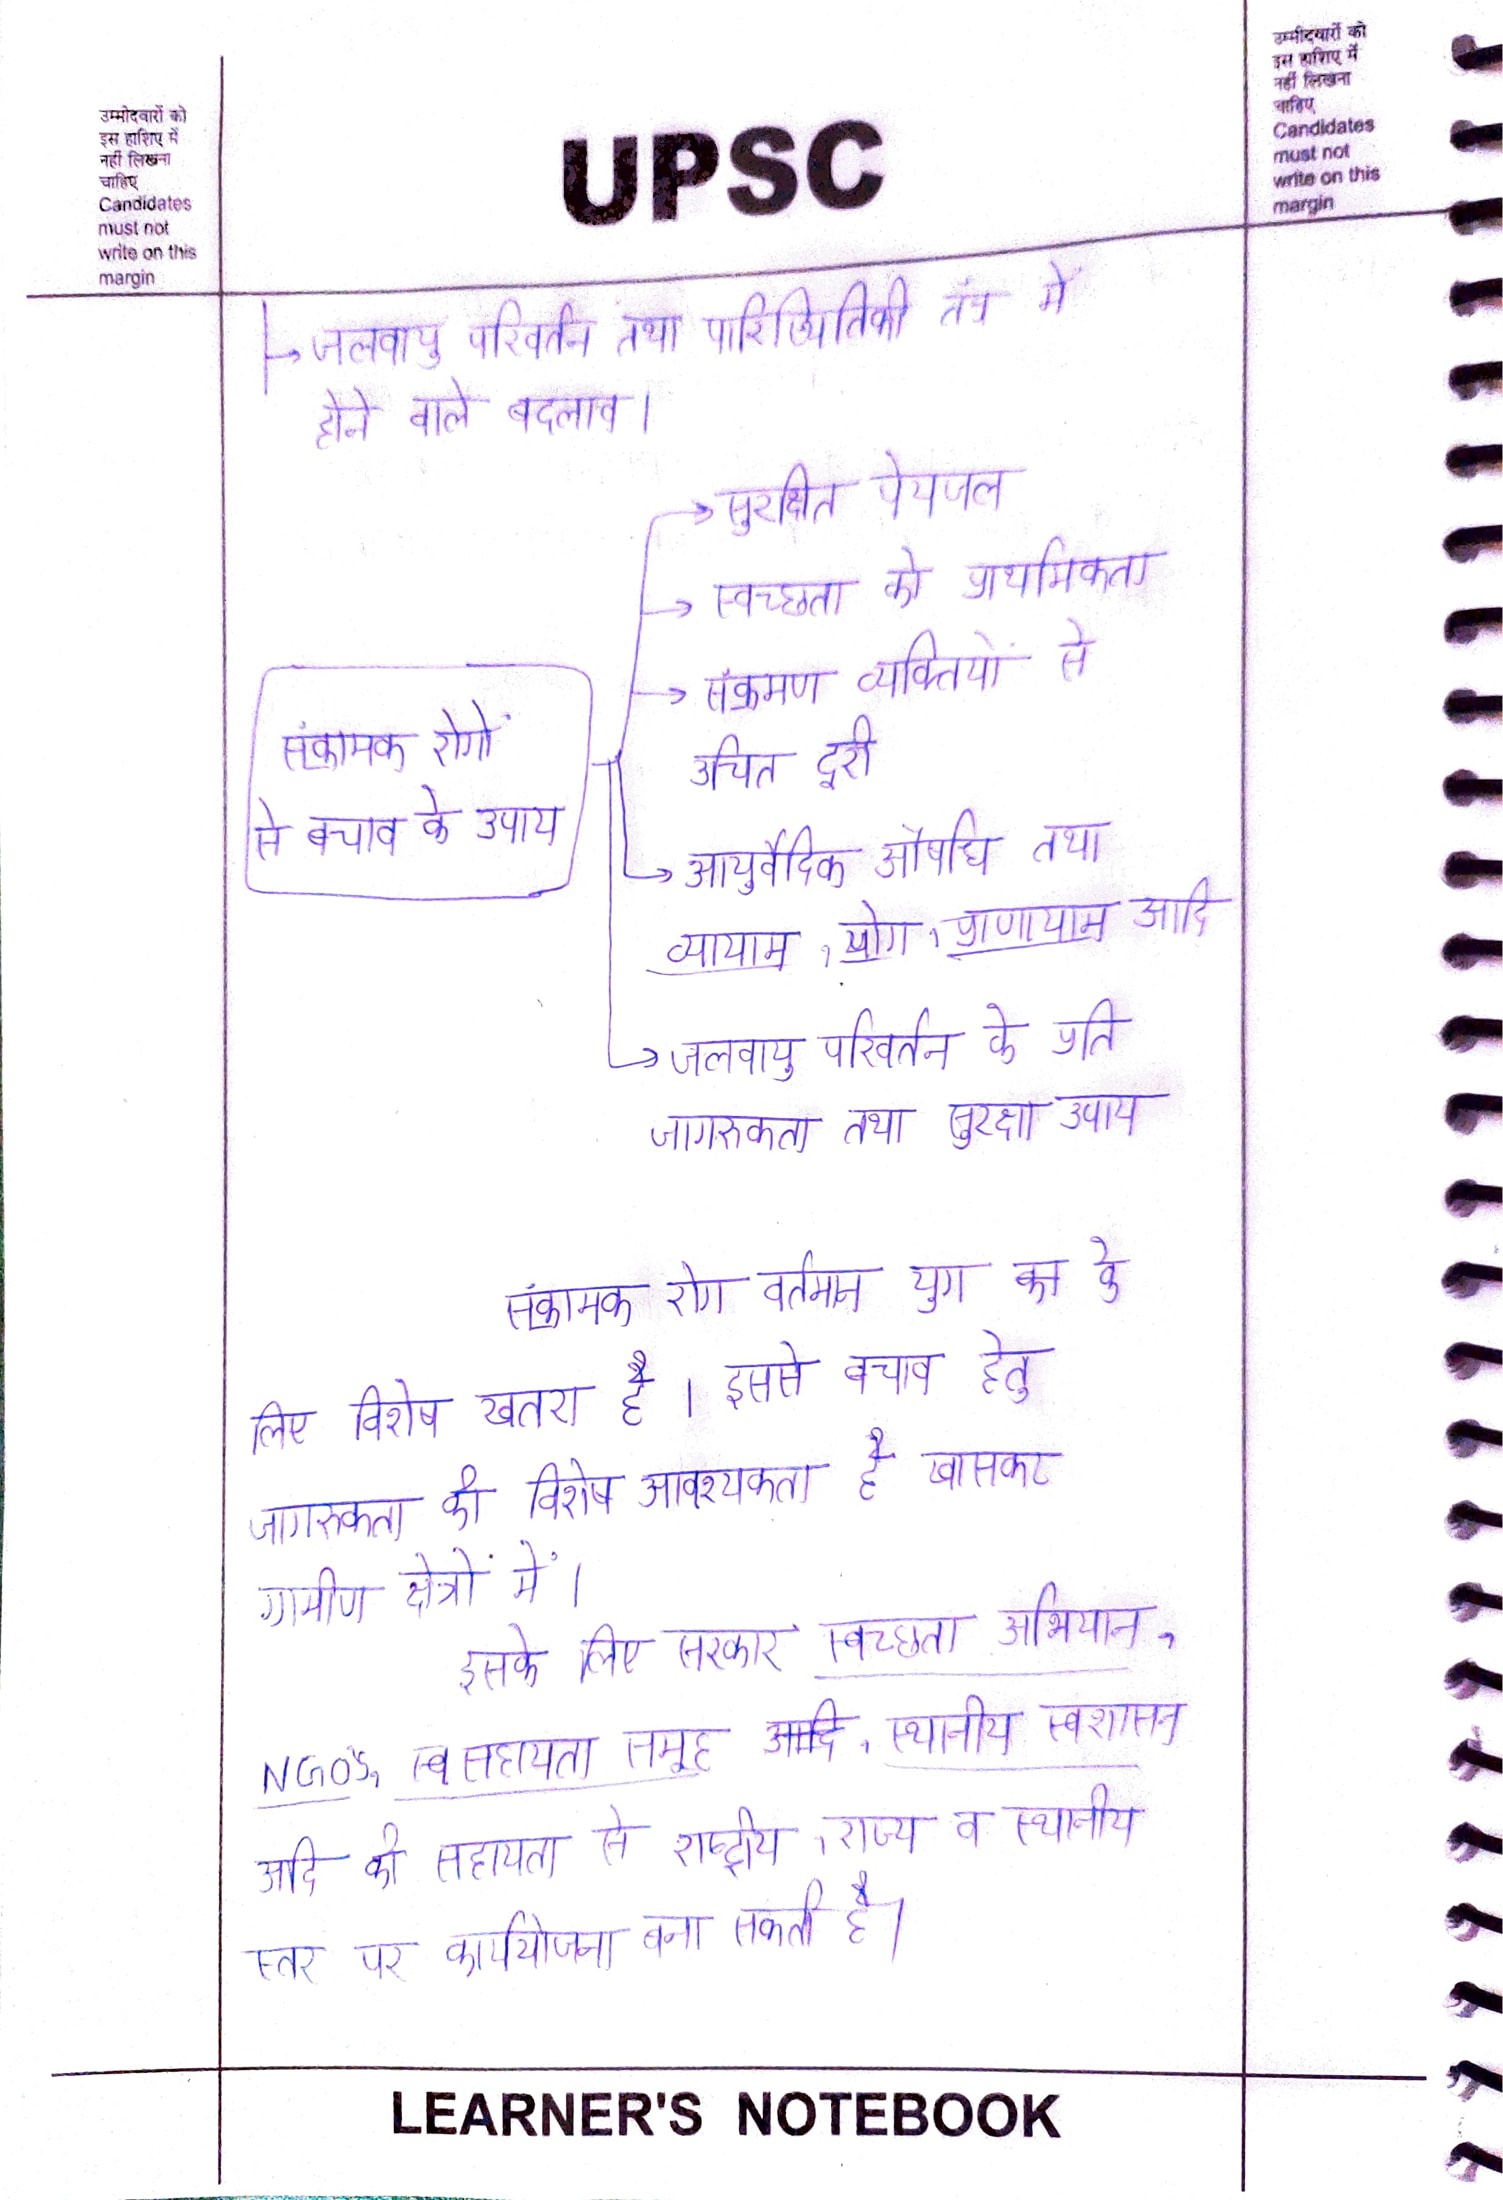 उम्मीदवारों को
इस हाशिए में
नहीं लिखना
चाहिए
Candidates
must not
write on this
margin
UPSC
उम्मीदवारों को
इस हाशिए में
नहीं लिखना
चाहिए
Candidates
must not
write on this
margin
→ जलवायु परिवर्तन तथा पारिस्थितिकी तंत्र में
होने वाले बदलाव।
→ सुरक्षित पेयजल
→ स्वच्छता को प्राथमिकता
→ संक्रमण व्यक्तियों से
उचित दूरी
संक्रामक रोगों
से बचाव के उपाय
→ आयुर्वेदिक औषधि तथा
व्यायाम, योग, प्राणायाम आदि
→ जलवायु परिवर्तन के प्रति
जागरुकता तथा सुरक्षा उपाय
संक्रामक रोग वर्तमान युग के
लिए विशेष खतरा है। इससे बचाव हेतु
जागरुकता की विशेष आवश्यकता है खासकर
ग्रामीण क्षेत्रों में।
इसके लिए सरकार स्वच्छता अभियान,
NGO's, स्व सहायता समूह आदि, स्थानीय स्वशासन
आदि की सहायता से राष्ट्रीय, राज्य व स्थानीय
स्तर पर कार्ययोजना बना सकती है।
LEARNER'S NOTEBOOK